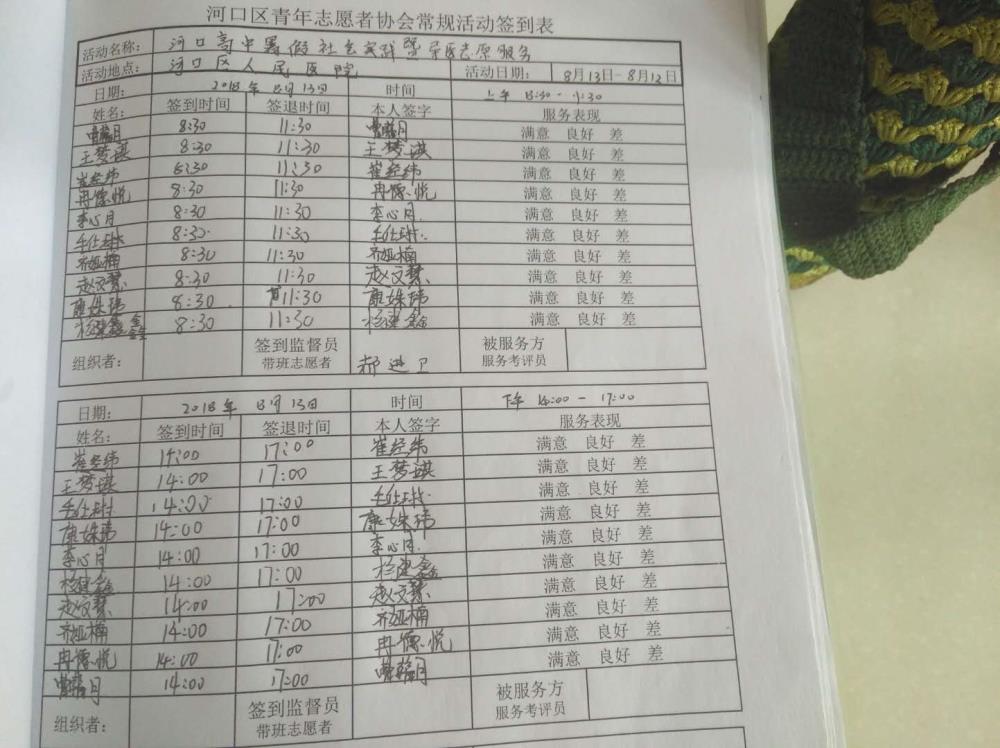 河口区青年志愿者协会常规活动签到表
活动名称： 河口高中暑假社会实践暨导医志愿服务
活动地点： 河口区人民医院 活动日期： 8月13日-8月12日
日期： 2018年 8月13日 时间 上午 8:30 - 11:30
姓名： 签到时间 签退时间 本人签字 服务表现
8:30 11:30 满意 良好 差
王梦淇 8:30 11:30 王梦淇 满意 良好 差
崔经纬 8:30 11:30 崔经纬 满意 良好 差
冉德悦 8:30 11:30 冉德悦 满意 良好 差
李心月 8:30 11:30 李心月 满意 良好 差
8:30 11:30 满意 良好 差
齐娅楠 8:30 11:30 齐娅楠 满意 良好 差
赵文慧 8:30 11:30 赵文慧 满意 良好 差
康姝玮 8:30 11:30 康姝玮 满意 良好 差
杨建鑫 8:30 11:30 杨建鑫 满意 良好 差
组织者： 签到监督员 带班志愿者 郝进卫 被服务方 服务考评员
日期： 2018年 8月13日 时间 下午 14:00 - 17:00
姓名： 签到时间 签退时间 本人签字 服务表现
崔经纬 14:00 17:00 崔经纬 满意 良好 差
王梦淇 14:00 17:00 王梦淇 满意 良好 差
14:00 17:00 满意 良好 差
康姝玮 14:00 17:00 康姝玮 满意 良好 差
李心月 14:00 17:00 李心月 满意 良好 差
杨建鑫 14:00 17:00 杨建鑫 满意 良好 差
赵文慧 14:00 17:00 赵文慧 满意 良好 差
齐娅楠 14:00 17:00 齐娅楠 满意 良好 差
冉德悦 14:00 17:00 冉德悦 满意 良好 差
14:00 17:00 满意 良好 差
组织者： 签到监督员 带班志愿者 被服务方 服务考评员